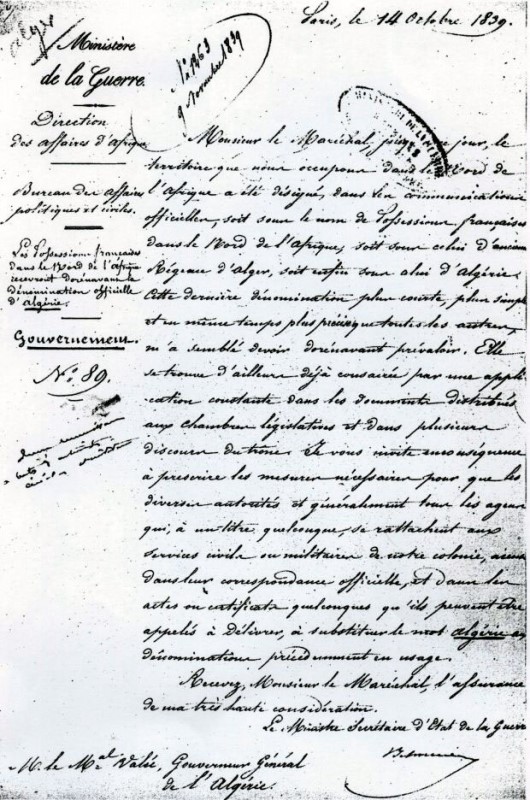 Paris, le 14 Octobre 1839.
Alger
Ministère
de la Guerre.
N° 1463
9 Novembre 1839
Direction
des affaires d'Afrique
Bureau des Affaires
politiques et civiles.
Les Possessions françaises
dans le Nord de l'Afrique
recevront dorénavant la
dénomination officielle
d'Algérie.
Gouvernement.
N° 89.
Monsieur le Maréchal, jusqu'à jour, le
territoire que nous occupons dans le Nord de
l'Afrique a été désigné, dans les communications
officielles, soit sous le nom de Possessions françaises
dans le Nord de l'Afrique, soit sous celui d'ancienne
Régence d'Alger, soit enfin sous celui d'Algérie.
Cette dernière dénomination plus courte, plus simple
et en même temps plus précise que toutes les autres,
m'a semblé devoir dorénavant prévaloir. Elle
se trouve d'ailleurs déjà consacrée par une appli-
cation constante dans les documents distribués
aux chambres législatives et dans plusieurs
discours du trône. Je vous invite en conséquence
à prescrire les mesures nécessaires pour que les
diverses autorités et généralement tous les agens
qui, à un titre quelconque, se rattachent aux
services civils ou militaires de notre colonie, aient
dans leur correspondance officielle, et dans les
actes ou certificats quelconques qu'ils peuvent être
appelés à Délivrer, à substituer le mot algérie aux
dénominations précédemment en usage.
Recevez, Monsieur le Maréchal, l'assurance
de ma très haute considération.
Le Ministre Secrétaire d'Etat de la Guerre
M. le Mal Valée, Gouverneur Général
de l'Algérie.